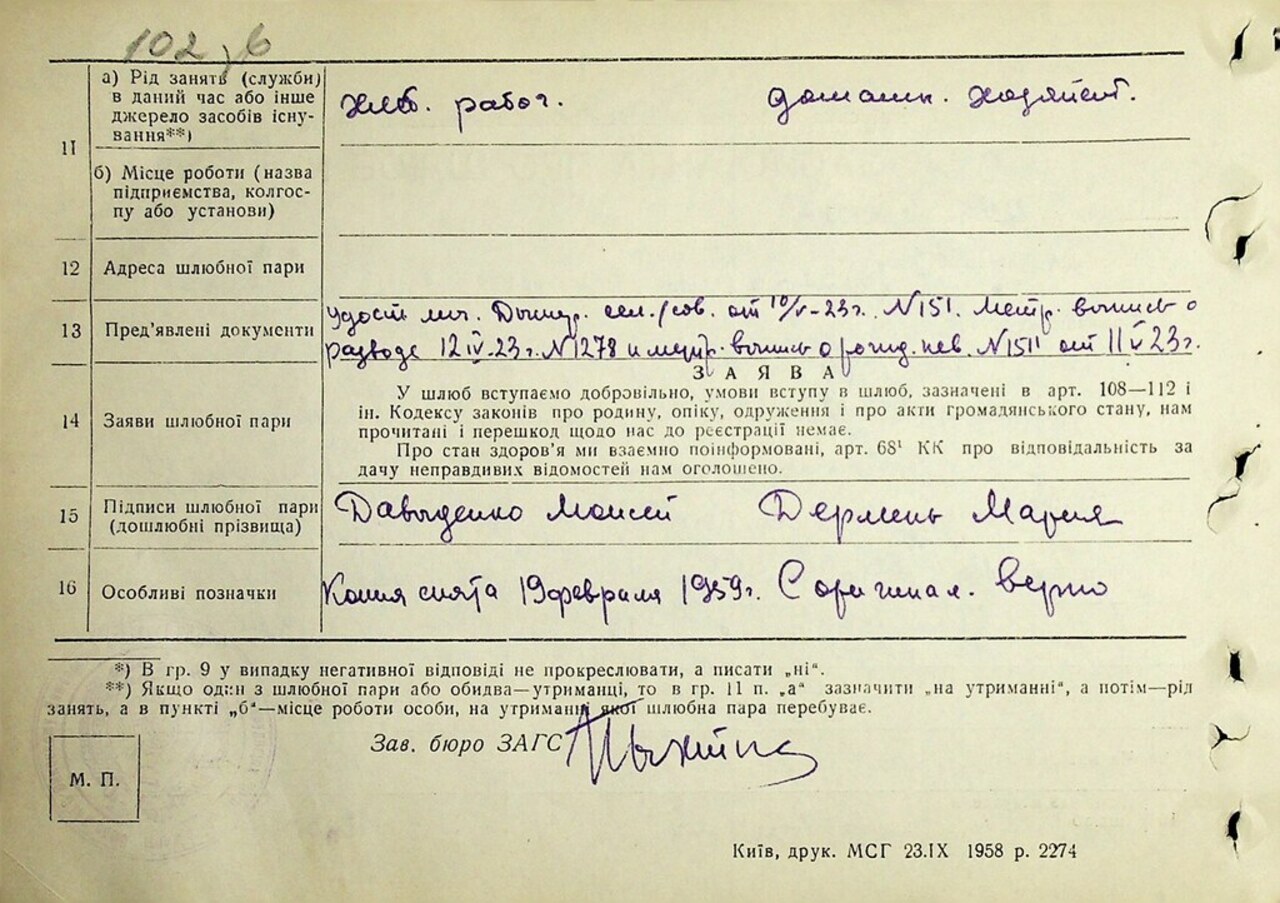 102 об
11
а) Рід занять (служби)
в даний час або інше
джерело засобів існу-
вання**)
хлеб. рабоч.
домашн. хозяйств.
б) Місце роботи (назва
підприємства, колгос-
пу або установи)
12
Адреса шлюбної пари
13
Пред’явлені документи
удост. лич. сел./сов. от 10/V-23г. N151. Метр. выпись о
разводе 12 IV-23г. N1278 и метр. выпись о рожд. нев. N1511 от 11 V 23г.
14
Заяви шлюбної пари
З А Я В А
У шлюб вступаємо добровільно, умови вступу в шлюб, зазначені в арт. 108—112 і
ін. Кодексу законів про родину, опіку, одруження і про акти громадянського стану, нам
прочитані і перешкод щодо нас до реєстрації немає.
Про стан здоров’я ми взаємно поінформовані, арт. 68¹ КК про відповідальність за
дачу неправдивих відомостей нам оголошено.
15
Підписи шлюбної пари
(дошлюбні прізвища)
Давыденко Моисей
Дермень Мария
16
Особливі позначки
Копия снята 19 февраля 1959г. С оригинал. верно
*) В гр. 9 у випадку негативної відповіді не прокреслювати, а писати „ні“.
**) Якщо один з шлюбної пари або обидва—утриманці, то в гр. 11 п. „а“ зазначити „на утриманні“, а потім—рід
занять, а в пункті „б“—місце роботи особи, на утриманні якої шлюбна пара перебуває.
Зав. бюро ЗАГС
М. П.
Київ, друк. МСГ 23.IX 1958 р. 2274